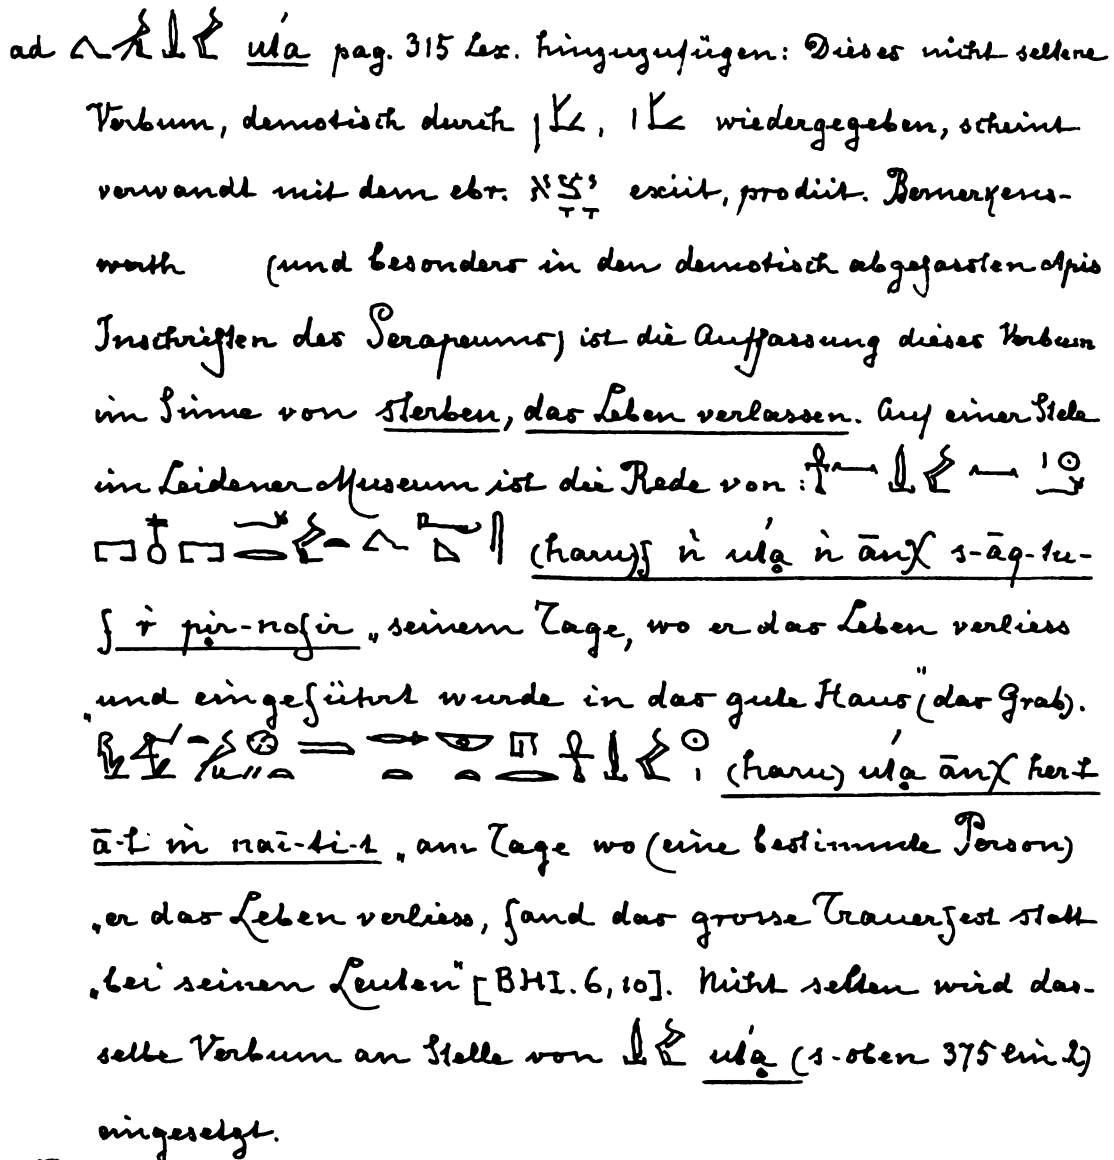 ad uťa pag. 315 Lex. hinzuzufügen: Dieses nicht seltene
Verbum, demotisch durch , wiedergegeben, scheint
verwandt mit dem ebr. יָצָא exiit, prodiit. Bemerkens-
werth (und besonders in den demotisch abgefassten Apis
Inschriften des Serapeums) ist die Auffassung dieses Verbum
im Sinne von sterben, das Leben verlassen. Auf einer Stele
im Leidener Museum ist die Rede von:
(haru)f ǹ uťa̤ ǹ ānχ s-āq-tu-
f r̀ pi̤r-nofir „seinem Tage, wo er das Leben verliess
„und eingeführt wurde in das gute Haus" (das Grab).
(haru) uťa̤ ānχ her-t
ā-t m̀ naī-ti-t „am Tage wo (eine bestimmte Person)
„er das Leben verliess, fand das grosse Trauerfest statt
„bei seinen Leuten" [BHI. 6, 10]. Nicht selten wird das-
selbe Verbum an Stelle von uťa̤ (s. oben 375 lin 2)
eingesetzt.